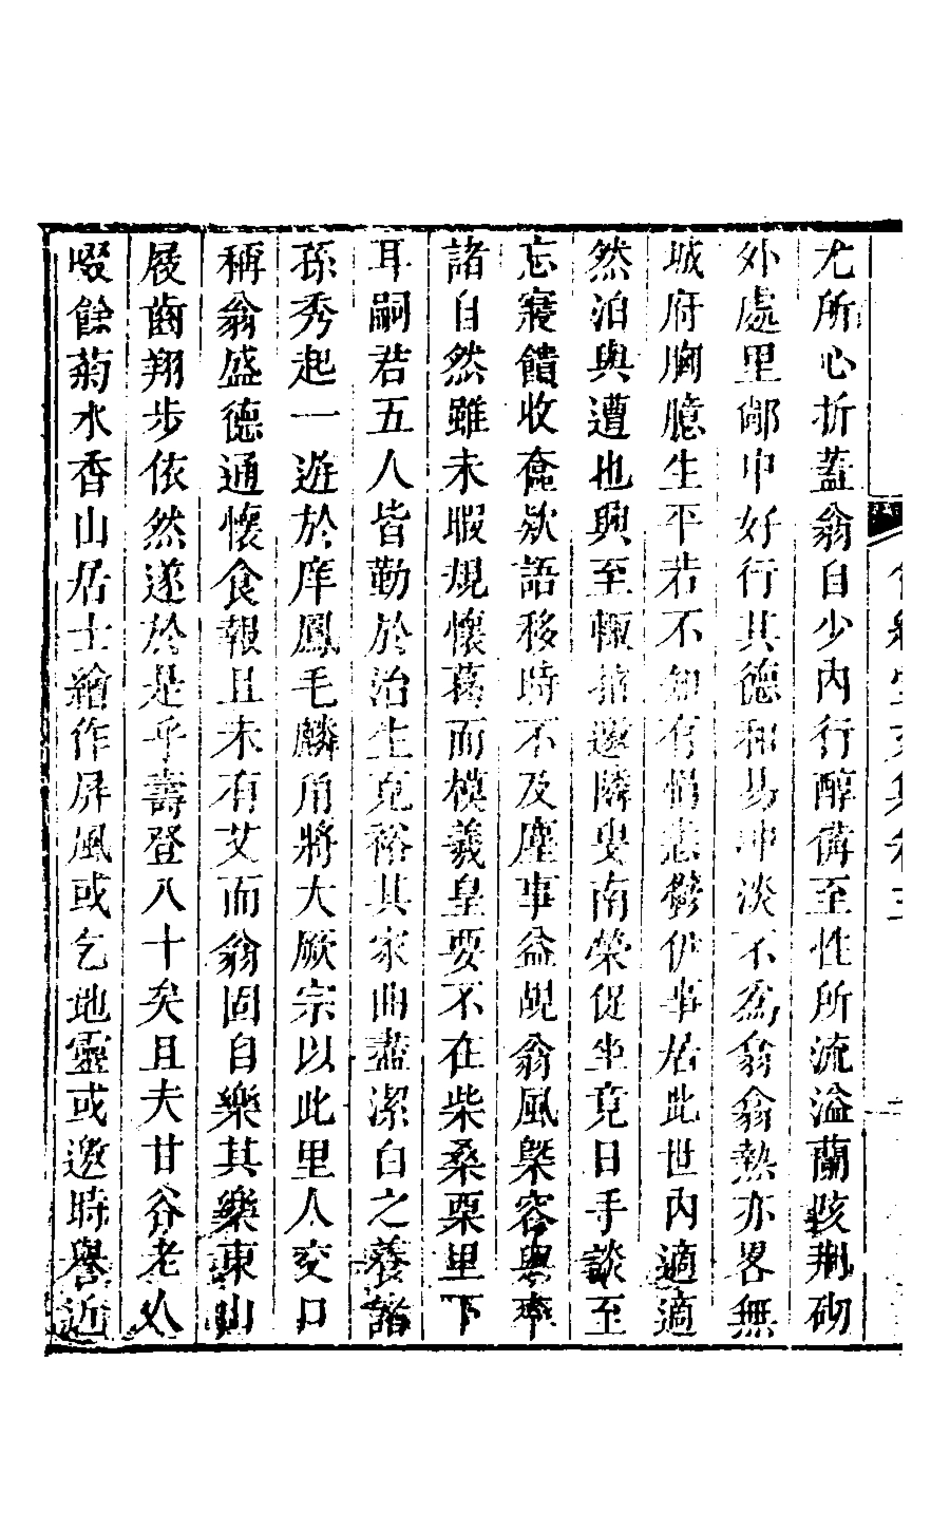 尤所心折蓋翁自少內行醇備至性所流溢蘭陔荊砌
外處里鄰中好行其德和易冲淡不為翁翁熱亦畧無
城府胸臆生平若不知有悁恚鬱伊事居此世內適適
然泊與遭也興至輒招邀隣叟南榮促坐竟日手談至
忘寢饋收奩欵語移時不及塵事益覘翁風槩容與率
諸自然雖未暇規懷葛而模羲皇要不在柴桑栗里下
耳嗣君五人皆勤於治生克裕其家曲盡潔白之養諸
孫秀起一遊於庠鳳毛麟角將大厥宗以此里人交口
稱翁盛德通懷食報且未有艾而翁固自樂其樂東山
屐齒翔步依然遂於是乎壽登八十矣且夫甘谷老人
啜餘菊水香山居士繪作屏風或乞地靈或邀時譽近